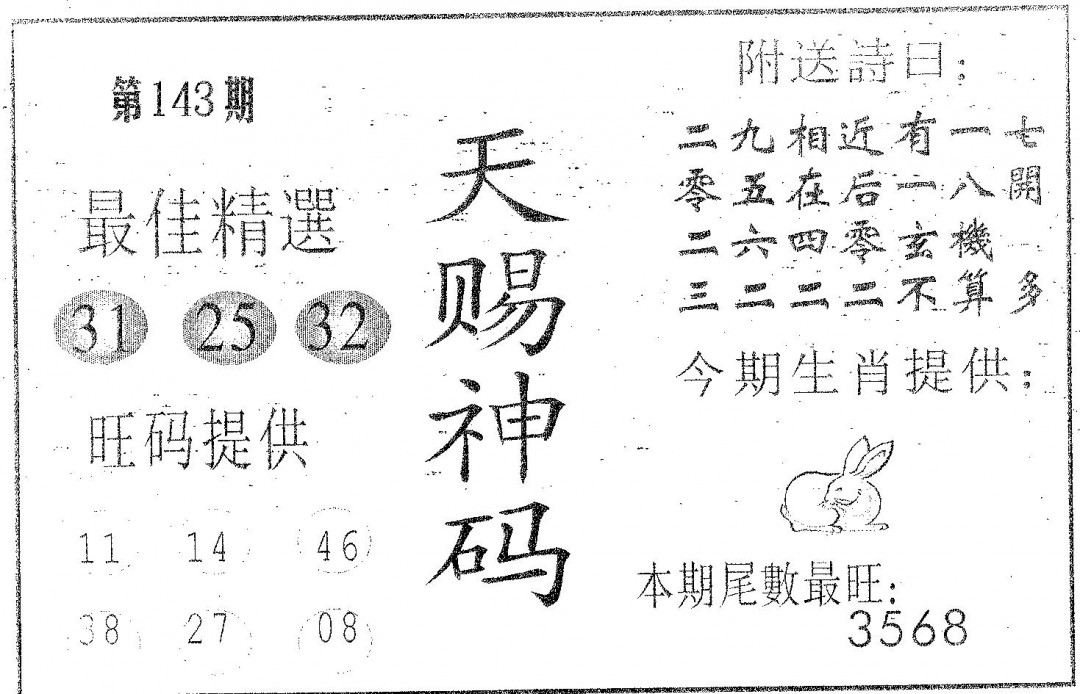 第143期
最佳精選
31 25 32
旺码提供
11 14 46
38 27 08
天赐神码
附送詩曰：
二九相近有一七
零五在后一八開
二六四零玄機
三二二二不算多
今期生肖提供：
本期尾數最旺：
3568